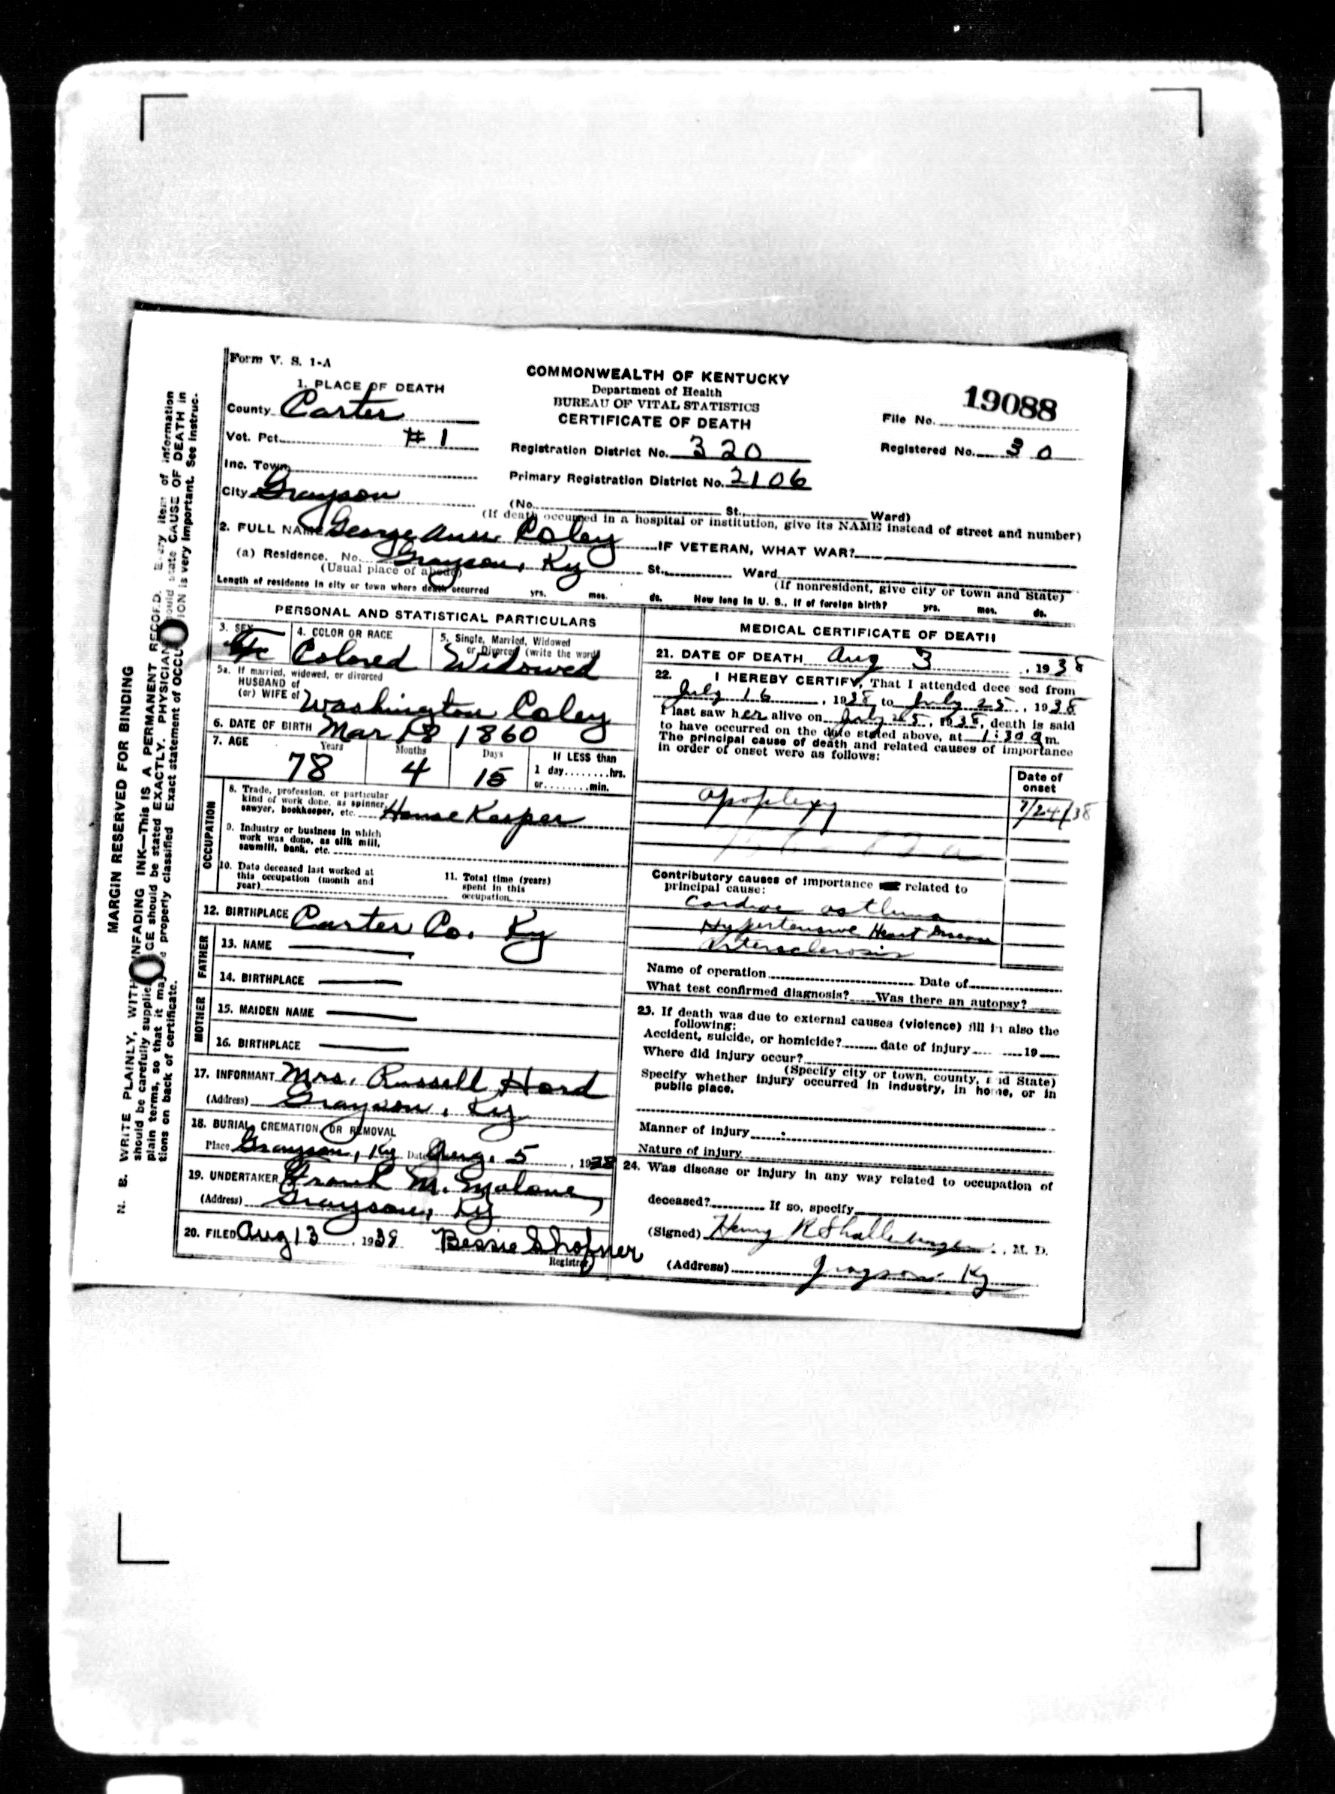 Form V. S. 1-A
COMMONWEALTH OF KENTUCKY
Department of Health
BUREAU OF VITAL STATISTICS
CERTIFICATE OF DEATH
File No. 19088
Registered No. 30
1. PLACE OF DEATH
County Carter
Vot. Pct. #1
Inc. Town
City Grayson
Registration District No. 320
Primary Registration District No. 2106
(No. St. Ward)
(If death occurred in a hospital or institution, give its NAME instead of street and number)
2. FULL NAME George Ann Coley IF VETERAN, WHAT WAR?
(a) Residence. No. Grayson, Ky St. Ward
(Usual place of abode) (If nonresident, give city or town and State)
Length of residence in city or town where death occurred yrs. mos. ds. How long in U. S., if of foreign birth? yrs. mos. ds.
PERSONAL AND STATISTICAL PARTICULARS
3. SEX Fe
4. COLOR OR RACE Colored
5. Single, Married, Widowed
or Divorced (write the word)
Widowed
5a. If married, widowed, or divorced
HUSBAND of
(or) WIFE of Washington Coley
6. DATE OF BIRTH Mar 18 1860
7. AGE Years Months Days If LESS than
78 4 15 1 day hrs.
or min.
OCCUPATION
8. Trade, profession, or particular
kind of work done, as spinner,
sawyer, bookkeeper, etc. House Keeper
9. Industry or business in which
work was done, as silk mill,
sawmill, bank, etc.
10. Date deceased last worked at
this occupation (month and
year)
11. Total time (years)
spent in this
occupation
12. BIRTHPLACE Carter Co. Ky
FATHER
13. NAME
14. BIRTHPLACE
MOTHER
15. MAIDEN NAME
16. BIRTHPLACE
17. INFORMANT Mrs. Russell Hord
(Address) Grayson, Ky
18. BURIAL, CREMATION, OR REMOVAL
Place Grayson, Ky Date Aug. 5, 1938
19. UNDERTAKER Frank M. Malone
(Address) Grayson, Ky
20. FILED Aug 13, 1938 Bessie Shofner
Registrar
MEDICAL CERTIFICATE OF DEATH
21. DATE OF DEATH Aug 3, 1938
22. I HEREBY CERTIFY, That I attended deceased from
July 16, 1938 to July 25, 1938
I last saw her alive on July 25, 1938, death is said
to have occurred on the date stated above, at 1:30 a m.
The principal cause of death and related causes of importance
in order of onset were as follows:
Date of
onset
apoplexy 7/24/38
Contributory causes of importance related to
principal cause:
Cardiac asthma
Hypertensive Heart Disease
Arteriosclerosis
Name of operation Date of
What test confirmed diagnosis? Was there an autopsy?
23. If death was due to external causes (violence) fill in also the
following:
Accident, suicide, or homicide? date of injury 19
Where did injury occur?
(Specify city or town, county, and State)
Specify whether injury occurred in industry, in home, or in
public place.
Manner of injury
Nature of injury
24. Was disease or injury in any way related to occupation of
deceased? If so, specify
(Signed) Henry R Shallenberger, M. D.
(Address) Grayson Ky
MARGIN RESERVED FOR BINDING
N. B. WRITE PLAINLY, WITH UNFADING INK—THIS IS A PERMANENT RECORD. Every item of information
should be carefully supplied. AGE should be stated EXACTLY. PHYSICIANS should state CAUSE OF DEATH in
plain terms, so that it may be properly classified. Exact statement of OCCUPATION is very important. See instruc-
tions on back of certificate.